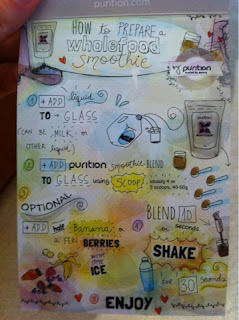 purition.com
HOW to PREPARE a
wholefood
smoothie
purition
1 + ADD liquid
TO → GLASS
(CAN BE MILK or
OTHER liquid)
2 + ADD purition smoothie BLEND
TO GLASS using Scoop
usually 4 or
5 scoops, 40-50g
OPTIONAL
+ ADD half Banana or
a FEW BERRIES
WITH SOME
ICE
BLEND 10
seconds
OR
SHAKE
FOR 30 Seconds
ENJOY